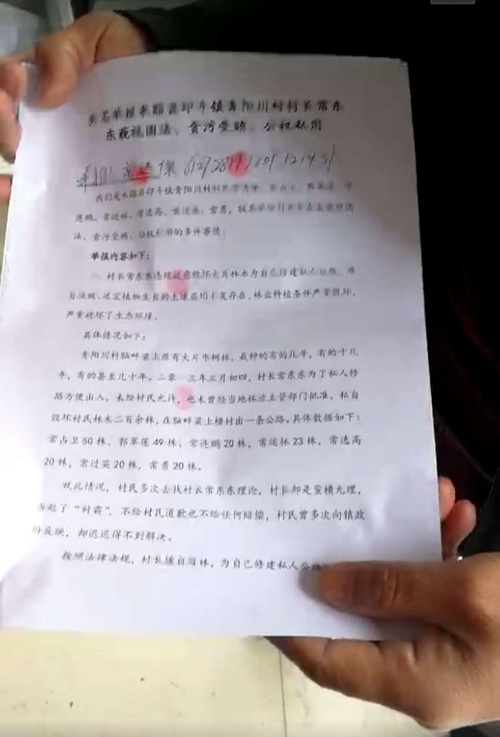 实名举报米脂县印斗镇青阳川村村长常东
东藐视国法、贪污受贿、公权私用
我们是米脂县印斗镇青阳川村村民
连鹏、常运林、常选高、常过英、常勇，联名举报村长常东东藐视国
法、贪污受贿、公权私用的多件事情：
举报内容如下：
一、村长常东东违规故意毁坏大片林木为自己修建私人公路，
适宜植物生长的土壤层均不复存在，林业种植条件严重毁坏，
严重破坏了生态环境。
具体情况如下：
青阳川村脑畔梁上原有大片枣树林，栽种的有的几年，有的十几
年，有的甚至几十年，二零一三年三月初四，村长常东东为了私人修
路方便出入，未经村民允许，也未曾经当地林业主管部门批准，私自
毁坏村民林木二百余株，在脑畔梁上横村出一条公路，具体数据如下：
常占卫50株，郭翠莲49株，常连鹏20株，常运林23株，常选高
20株，常过英20株，常勇20株。
就此情况，村民多次去找村长常东东理论，村长却是蛮横无理，
当起了“村霸”，不给村民道歉也不给任何赔偿，村民曾多次向镇政
府反映，却迟迟得不到解决。
按照法律法规，村长擅自毁林，为自己修建私人公路